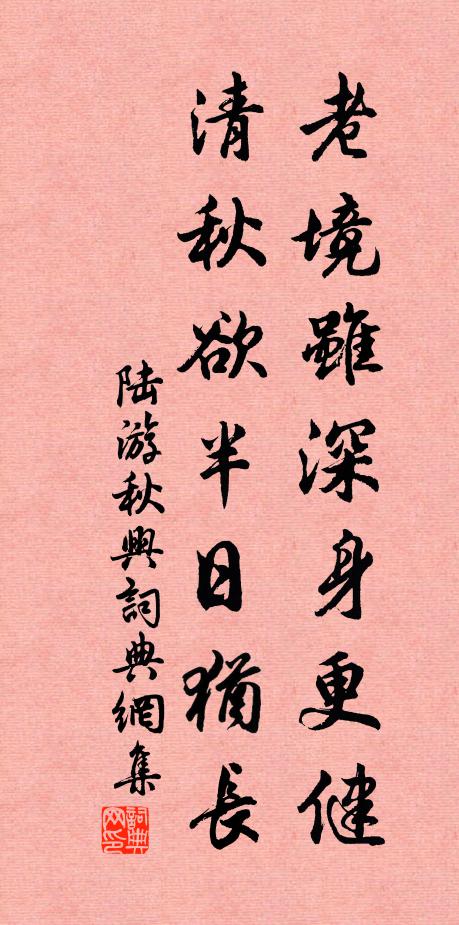 老境雖深身更健
清秋欲半日猶長
陆游秋興詞典網集
詞典网印